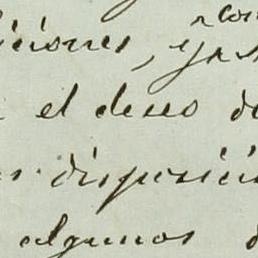 con
iciones, y
el deseo de
disposició
algunos d